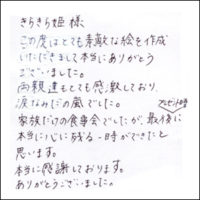 きらきら姫様、
この度はとても素敵な絵を作成
いただきまして本当にありがとう
ございました。
両親達もとても感激しており、
涙なみだの嵐でした。
プレゼント時
家族だけの食事会でしたが、最後に
本当に心に残る一時ができたと
思います。
本当に感謝しております。
ありがとうございました。